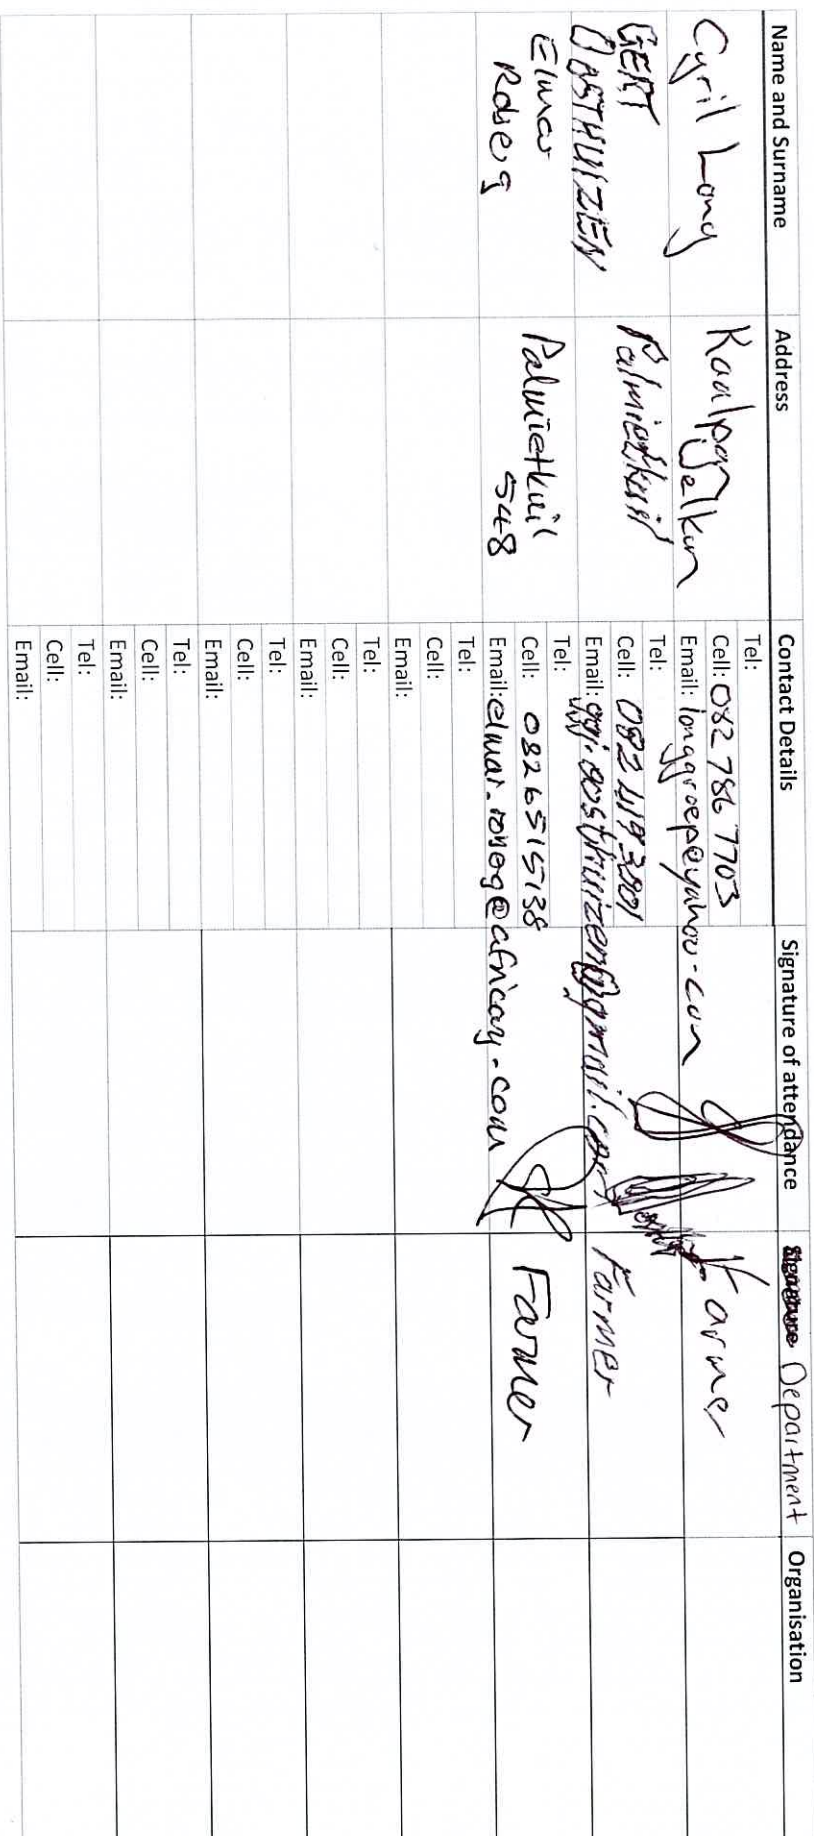 Name and Surname Address Contact Details Signature of attendance Department Organisation
Cyril Long
Kaalpan
Welkom
Tel:
Cell: 082 786 7703
Email: longgroep@yahoo.com
Farmer
GERT
OOSTHUIZEN
Palmietkuil
Tel:
Cell: 082
Email:
Farmer
Elmar
Roberg
Palmietkuil
548
Tel:
Cell: 0826515138
Email:
Farmer
Tel:
Cell:
Email:
Tel:
Cell:
Email:
Tel:
Cell:
Email:
Tel:
Cell:
Email:
Tel:
Cell:
Email: